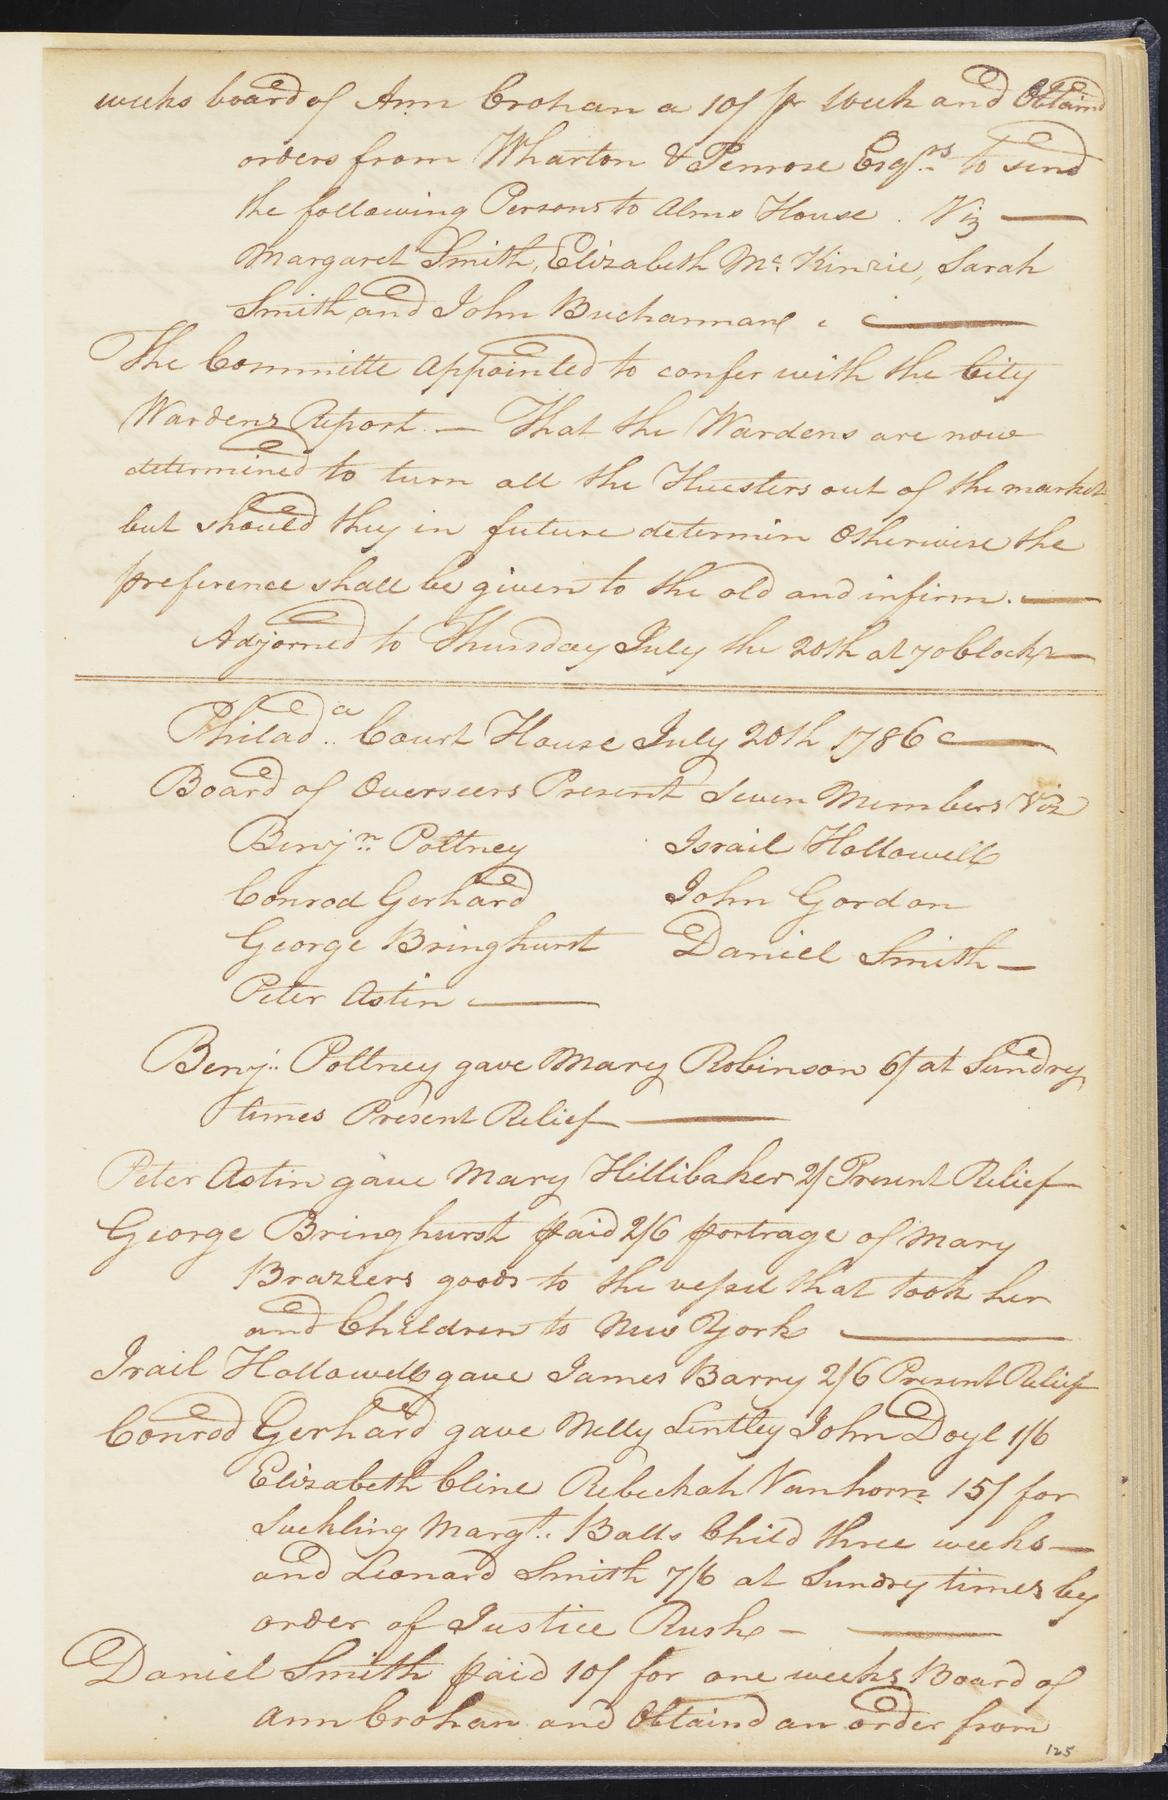 weeks board of Ann Crohan a 10/ pr Week and Obtaind
orders from Wharton & Penrose Esqrs. to send
the following Persons to Alms House. Viz —
Margaret Smith, Elizabeth Mc. Kinzie, Sarah
Smith and John Buchannan
The Committe appointed to confer with the City
Wardens Report. — That the Wardens are now
determined to turn all the Hucsters out of the market
but should they in future determin Otherwise the
preference shall be given to the old and infirm. —
Adjorned to Thursday July the 20th at 7 oClock —
Philada.. Court House July 20th 1786 —
Board of Overseers Present Seven Members Viz
Benjn.. Poltney Israil Hollowell
Conrod Gerhard John Gordon
George Bringhurst Daniel Smith —
Peter Astin —
Benj.. Poltney gave Mary Robinson 6/ at Sundry
times Present Relief —
Peter Astin gave Mary Hillibaker 2/ Present Relief
George Bringhurst paid 2/6 portrage of Mary
Braziers goods to the vessel that took her
and Children to New York —
Irail Hollowell gave James Barry 2/6 Present Relief
Conrod Gerhard gave Nelly Lintley John Doyl 1/6
Elizabeth Cline Rebeckah Vanhorn 15/ for
Suckling Margt.. Balls Child three weeks —
and Leonard Smith 7/6 at Sundry times by
order of Justice Rush — —
Daniel Smith paid 10/ for one weeks Board of
Ann Crohan and Obtaind an order from
125